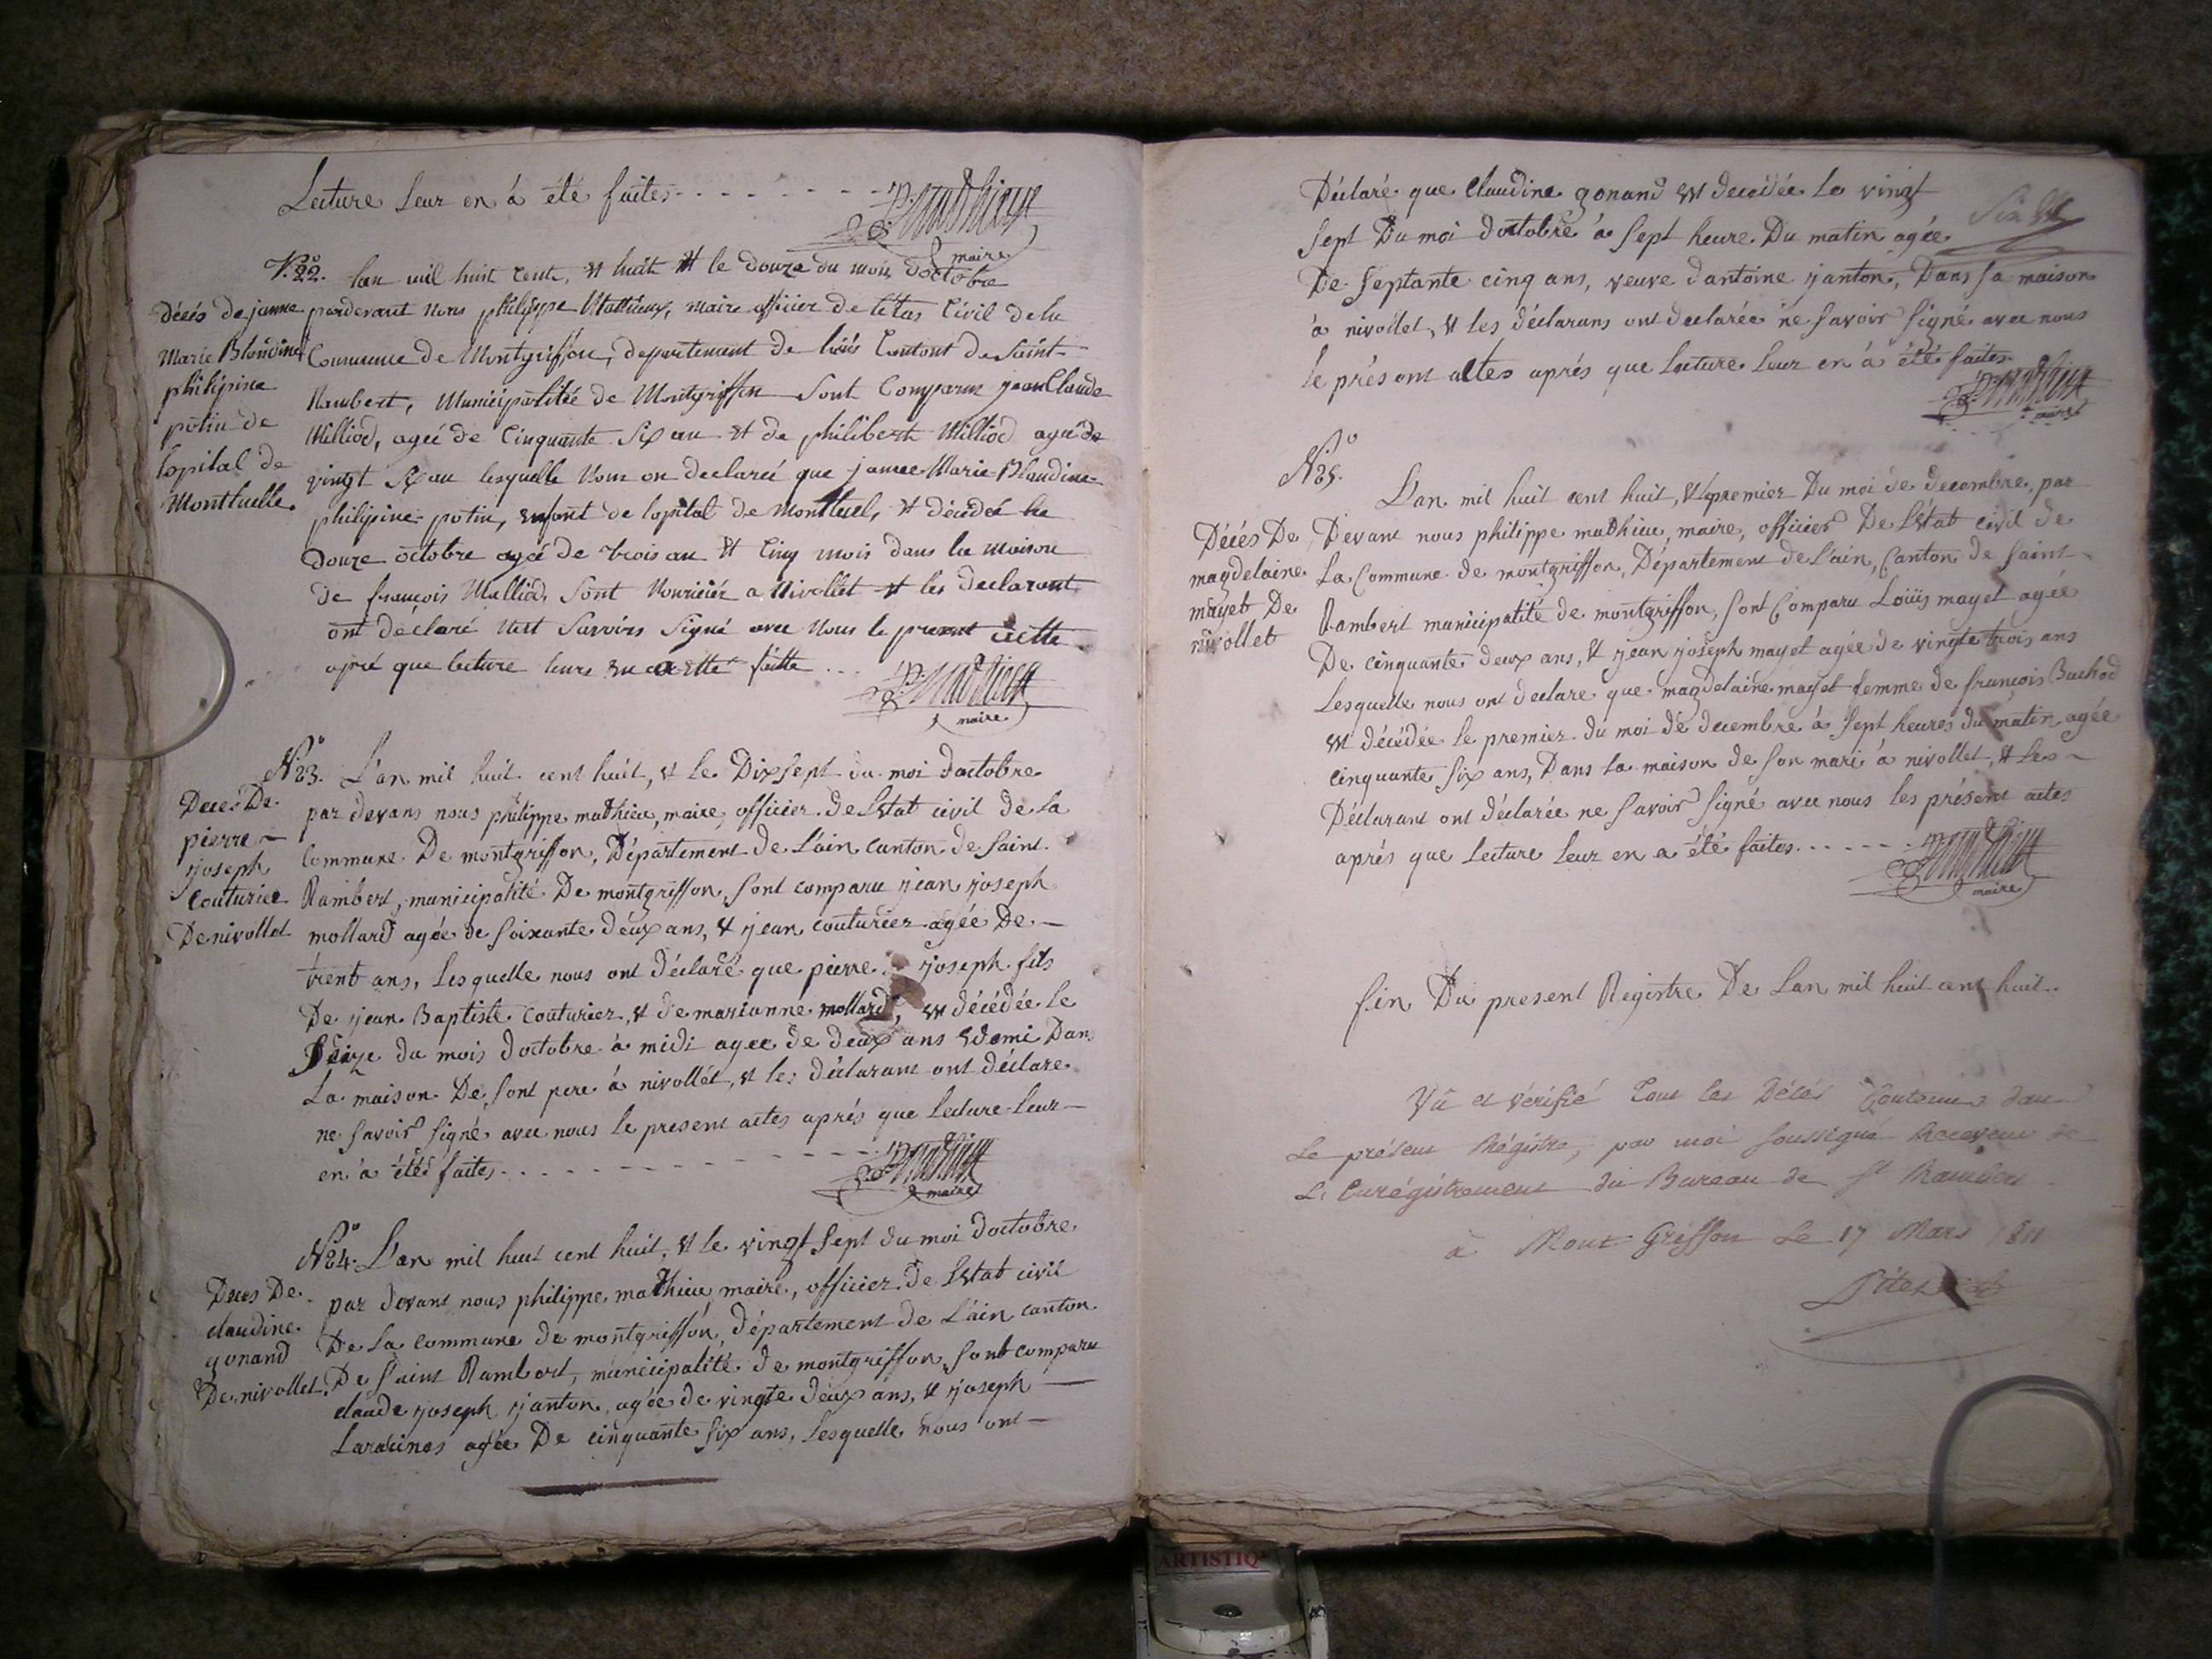 Lecture leur en à été faites
P. Mathieu
maire
N.º 22. lan mil huit cent, et huit et le douze du mois doctobre
Décés de janne
Marie Blondine
philipine
potin de
lopital de
Montluelle.
pardevant nous philippe Mathieux, maire officier de létas Civil de la
Commune de Montgriffon, departement de Cantont de Saint
Rambert, Municipalitée de Montgriffon Sont Comparu jean Claude
Milliod, ageé de Cinquante Six an et de philibert Milliod ageé de
vingt Six an lesquelle Nous on declareé que janne Marie Blandine
philipine potin, enfant de lopital de Montluel, et décédeé le
douze octobre ageé de trois an et Cinq mois dans la maison
de françois Milliod, Sont Nouricier a Nivollet et les declarant
ont déclaré Savoirs Signé avec Nous le present actte
apré que lecture leurs en a etté faitte
P. Mathieu
maire
Nº 23. L'an mil huit cent huit, et le Dix sept du moi doctobre
Decés De
pierre
joseph
Couturier
De nivollet
par devans nous philippe mathieu, maire, officier de l'état civil de la
Commune De montgriffon, Département de L'ain Canton de saint
Rambert, municipalité De montgriffon, sont comparu jean joseph
mollard agée de soixante deux ans, et jean couturier agée De
trent ans, Lesquelle nous ont déclaré que pierre joseph fils
De jean Baptiste Couturier, et de marianne mollard, est décédée le
Seize du mois doctobre à midi agee de deux ans et demi Dans
La maison De sont pere à nivollét, et les déclarant ont déclare
ne savoir signé avec nous le present actes aprés que lecture leur
en à étés faites
P. Mathieu
maire
Nº 24. L'an mil huit cent huit, et le vingt sept du moi doctobre
Deces De
claudine
gonand
De nivollet.
par devant nous philippe mathieu, maire, officier de l'état civil
De La commune de montgriffon, département de L'ain canton
De saint Rambert, municipalité de montgriffon, sont comparu
claude joseph janton, agée de vingte deux ans, et joseph
Laracines agée De cinquante six ans, Lesquelle nous ont
Déclaré que Claudine gonand est decédée Le vingt
sept Du moi doctobre à sept heure Du matin agée
De septante cinq ans, veuve dantoine janton, Dans sa maison
à nivollet, et les déclarans ont declarée ne savoir signé avec nous
le présent actes aprés que lecture leur en à été faites
P. Mathieu
maire
Nº 25.
L'an mil huit cent huit, et le premier Du moi de decembre, par
Décés De
magdelaine
mayet De
nivollet
Devant nous philippe mathieu, maire, officier De L'état civil de
La Commune de montgriffon, Département de L'ain, Canton de saint
Rambert municipalité de montgriffon, sont Comparu Loüis mayet agée
De cinquante deux ans, et jean joseph mayet agée de vingte trois ans
Lesquelle nous ont declare que magdelaine mayet femme de françois Buchod
est décédée le premier du moi de decembre à sept heures du matin agée
cinquante six ans, Dans la maison de son mari à nivollet, et Les
Déclarant ont déclarée ne savoir signé avec nous les présent actes
aprés que Lecture Leur en a été faites
P. Mathieu
maire
fin Du present Registre De Lan mil huit cent huit.
Vû et vérifié tout les Décés Contenus dans
Le présent Régistre, par moi soussigné Receveur de
L'Enrégistrement du Bureau de St Rambert
à Mont Griffon Le 17 Mars 1811
ARTISTIQ